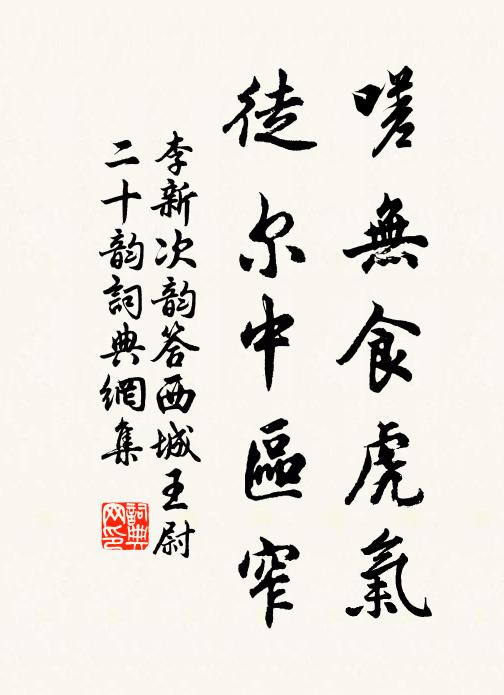 嗟無食虎氣
徒尔中區窄
李新次韵答西城王尉
二十韵詞典網集
詞典网印